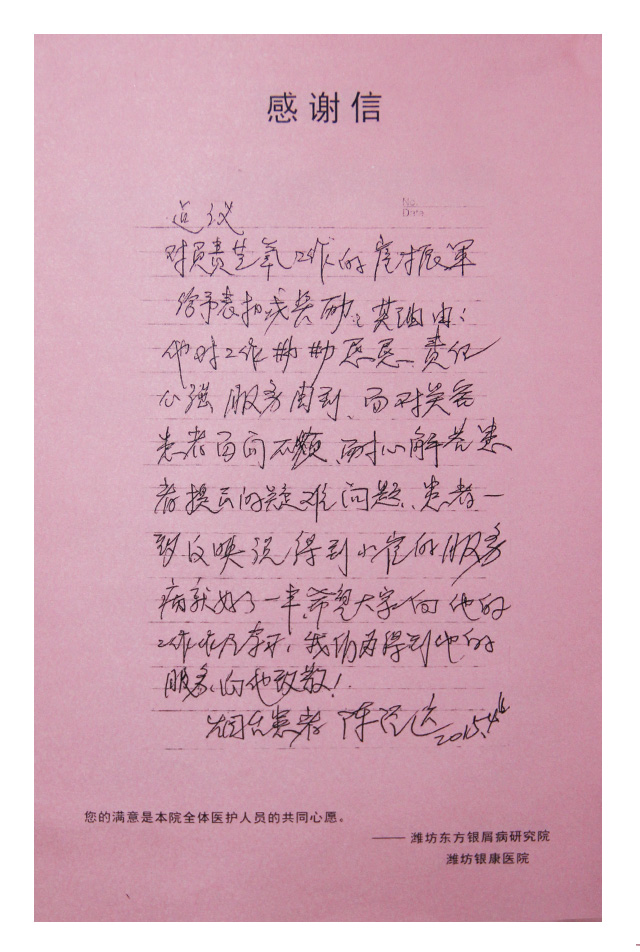 感谢信
No.
Date.
建议
对负责生氧工作的崔振军
给予表扬或奖励。其理由：
他对工作勤勤恳恳 责任
心强 服务周到、面对每
患者面问不烦、耐心解答患
者提出的疑难问题、患者一
致反映说得到小崔的服务
病就好了一半希望大家向他的
工作作风学习、我们为得到他的
服务、向他致敬！
患者 陈 2015.4
您的满意是本院全体医护人员的共同心愿。
—— 潍坊东方银屑病研究院
潍坊银康医院